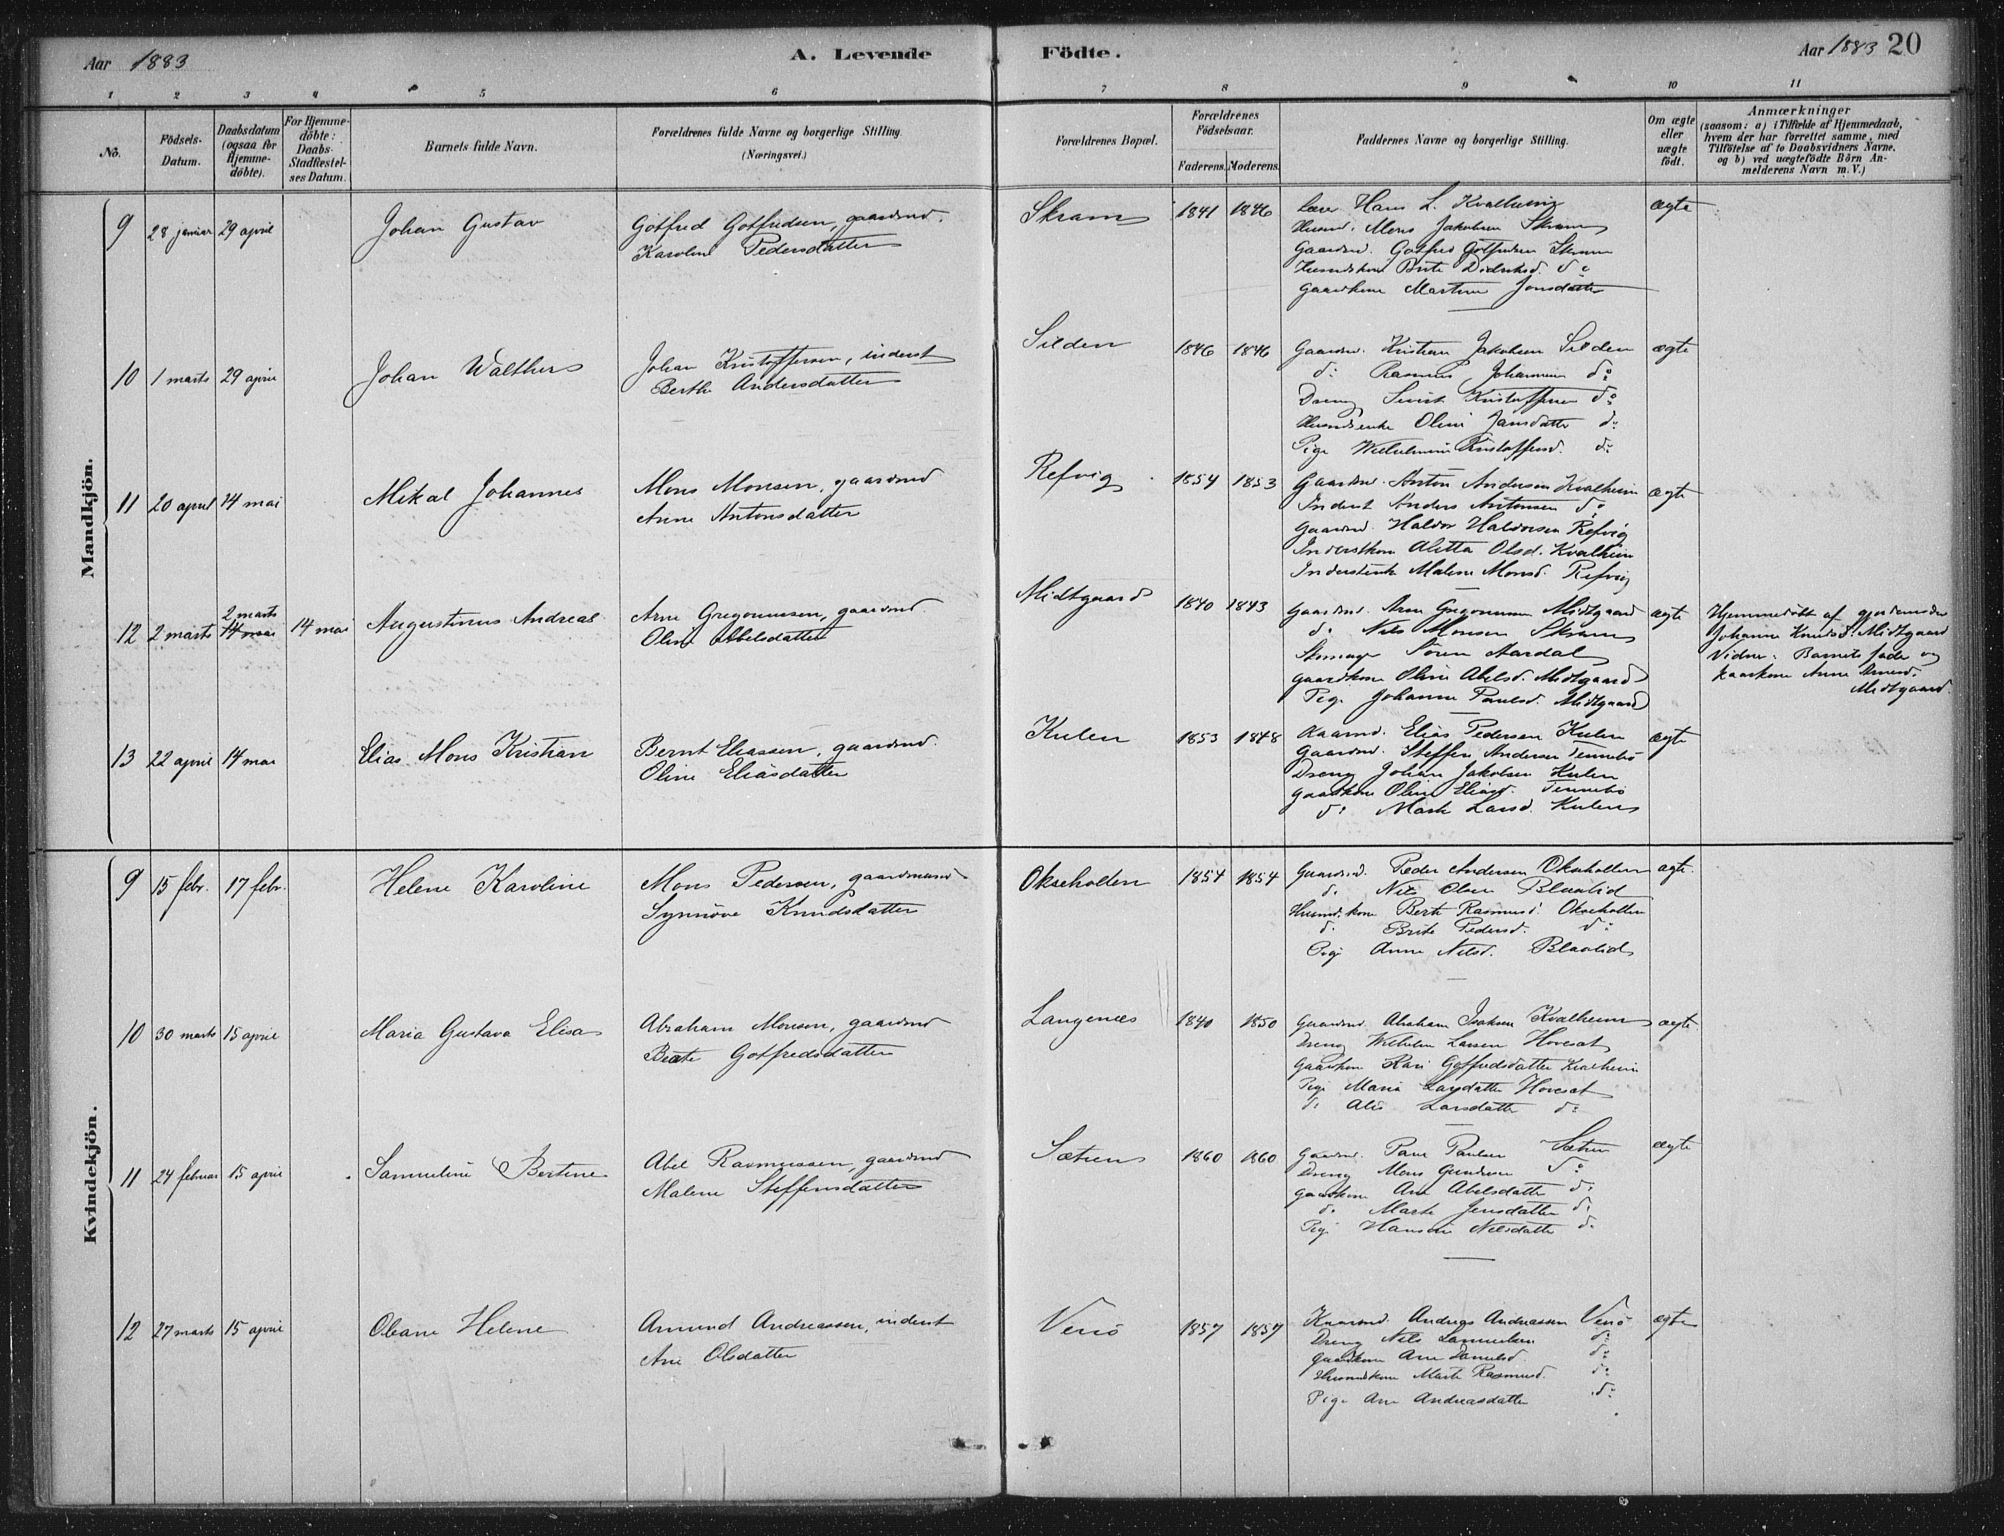 Aar 1883
A. Levende Födte.
Aar 1883 20
1 2 3 4 5 6 7 8 9 10 11
No.
Födsels-Datum.
Daabsdatum (ogsaa for Hjemme-döbte).
For Hjemme-döbte: Daabs-Stadfæstel-ses Datum.
Barnets fulde Navn.
Forældrenes fulde Navne og borgerlige Stilling. (Næringsvei.)
Forældrenes Bopæl.
Forældrenes Födselsaar.
Faderens. Moderens.
Faddernes Navne og borgerlige Stilling.
Om ægte eller uægte födt.
Anmærkninger
(saasom: a) i Tilfælde af Hjemmedaab, hvem der har forrettet samme, med Tilföielse af to Daabsvidners Navne, og b) ved uægtefödte Börn Anmelderens Navn m. V.)
Mandkjön.
9 28 januar 29 april Johan Gustav
Gotfred Gotfredsen, gaardmd.
Karoline Pedersdatter
Skram 1841 1846
Lærer Hans L. Kvalheim
Husmd. Mons Jakobsen Skram
Gaardmd. Gotfred Gotfredsen Skram
Husmdskone Brite Didriksd. do
Gaardkone Martine Jonsdatter
ægte
10 1 marts 29 april Johan Walthers
Johan Kristoffersen, inderst
Berthe Andersdatter
Silden 1846 1846
Gaardmd. Kristian Jakobsen Silden
do Rasmus Johannesen do
Dreng Sivert Kristoffersen do
Husmdsenke Oline Jansdatter do
Pige Wilhelmine Kristoffersd. do
ægte
11 20 april 14 mai Mikal Johannes
Mons Monsen, gaardmd
Anne Antonsdatter
Refvig 1854 1853
Gaardmd. Anton Andersen Kvalheim
Inderst Anders Antonsen do
Gaardmd. Haldor Haldorsen Refvig
Inderstkone Alette Olsd. Kvalheim
Inderstenke Malene Monsd. Refvig
ægte
12 2 marts 2 marts 14 mai 14 mai Augustinus Andreas
Arne Gregoriussen, gaardmd.
Oline Abelsdatter
Midtgaard 1840 1843
Gaardmd. Arne Gregoriussen Midtgaard
do Nils Monsen Skram
Skomager Sören Aardal
Gaardkone Oline Abelsd. Midtgaard
Pige Johanne Paulsd. Midtgaard
ægte
Hjemmedöbt af gjordemoder
Johanne Knudsd. Midtgaard
Vidner: Barnets fader og
kaarkone Anne Arnesd.
Midtgaard.
13 22 april 14 mai Elias Mons Kristian
Bernt Eliassen, gaardmd.
Oline Eliasdatter
Kulen 1853 1848
Kaarmd. Elias Pedersen Kulen
Gaardmd. Steffen Andersen Tennebö
Dreng Johan Jakobsen Kulen
Gaardkone Oline Eliasd. Tennebö
do Marte Larsd. Kulen
ægte
Kvindekjön.
9 15 febr. 17 febr. Helene Karoline
Mons Pedersen, gaardmand
Synnöve Knudsdatter
Okseholden 1854 1854
Gaardmd. Peder Andersen Okseholden
do Nils Olsen Blaalid
Husmd.kone Berte Rasmusd. Okseholden
do Brite Pedersd. do
Pige Anne Nilsd. Blaalid
ægte
10 30 marts 15 april Maria Gustava Elisa
Abraham Monsen, gaardmd
Beate Gotfredsdatter
Langenæs 1840 1850
Gaardmd. Abraham Isaksen Kvalheim
Dreng Wilhelm Larsen Hovesat
Gaardkone Kari Gotfredsdatter Kvalheim
Pige Maria Larsdatter Hovesat
do Alis Larsdatter do
ægte
11 24 februar 15 april Samueline Bertine
Abel Rasmussen, gaardmd
Malene Steffensdatter
Sætren 1860 1860
Gaardmd. Paul Paulsen Sætren
Dreng Mons Gundersen do
Gaardkone Ane Abelsdatter do
do Marte Jensdatter do
Pige Hansine Nilsdatter do
ægte
12 27 marts 15 april Oleane Helene
Amund Andreassen, inderst
Ane Olsdatter
Venö 1857 1857
Kaarmd. Andreas Andreassen Venö
Dreng Nils Samuelsen do
Gaardkone Ane Danielsd. do
Husmdskone Marte Rasmusd. do
Pige Ane Andreasdatter do
ægte